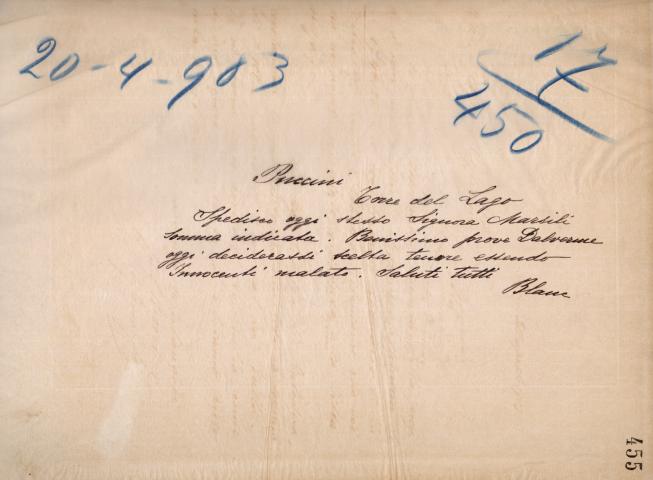 20-4-903
17
450
Puccini
Torre del Lago
Spedisco oggi stesso Signora Marsili
somma indicata. Benissimo prove Dalverme
oggi deciderassi scelta tenore essendo
Innocenti malato. Saluti tutti
Blanc
455